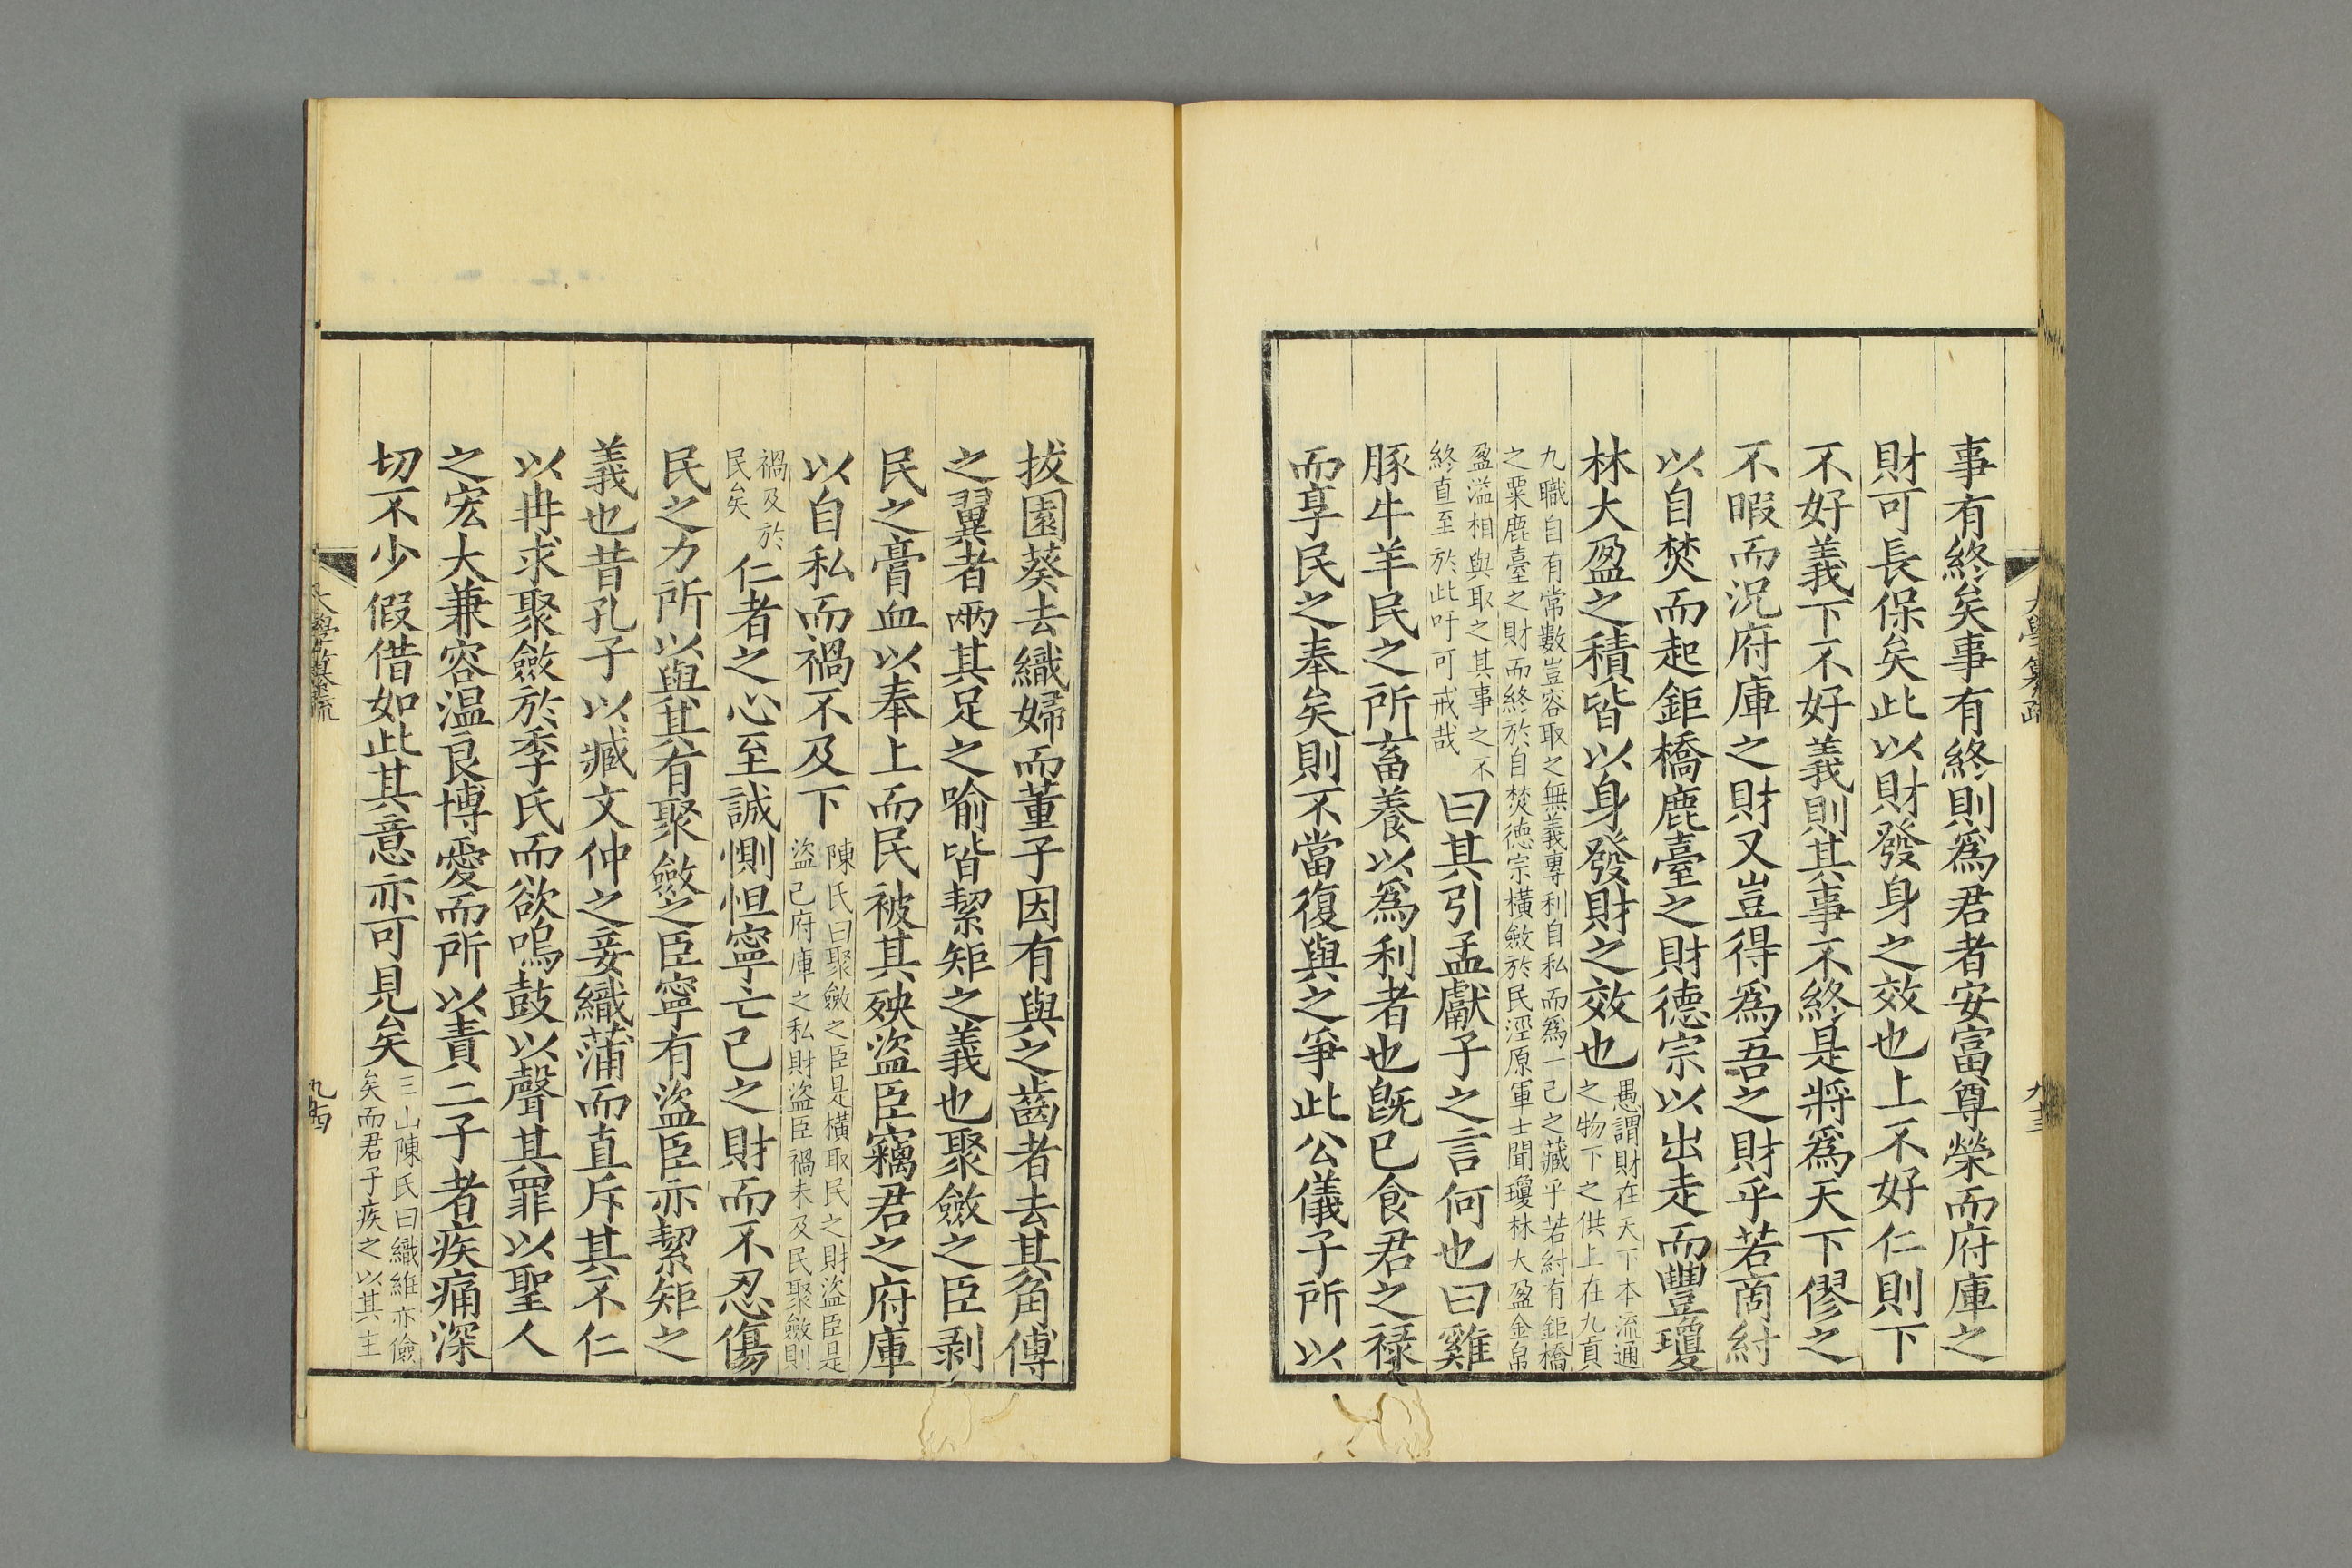 事有終矣事有終則爲君者安富尊榮而府庫之
財可長保矣此以財發身之效也上不好仁則下
不好義下不好義則其事不終是將爲天下僇之
不暇而況府庫之財又豈得爲吾之財乎若商紂
以自焚而起鉅橋鹿臺之財德宗以出走而豐瓊
林大盈之積皆以身發財之效也
愚謂財在天下本流通
之物下之供上在九貢
九職自有常數豈容取之無義專利自私而爲一己之藏乎若紂有鉅橋
之粟鹿臺之財而終於自焚德宗橫斂於民涇原軍士聞瓊林大盈金帛
盈溢相與取之其事之不
終直至於此吁可戒哉
曰其引孟獻子之言何也曰雞
豚牛羊民之所畜養以爲利者也旣已食君之祿
而享民之奉矣則不當復與之爭此公儀子所以
大學纂疏
九十三
拔園葵去織婦而董子因有與之齒者去其角傅
之翼者兩其足之喻皆絜矩之義也聚斂之臣剥
民之膏血以奉上而民被其殃盜臣竊君之府庫
以自私而禍不及下
陳氏曰聚斂之臣是橫取民之財盜臣是
盜己府庫之私財盜臣禍未及民聚斂則
禍及於
民矣
仁者之心至誠惻怛寧亡己之財而不忍傷
民之力所以與其有聚斂之臣寧有盜臣亦絜矩之
義也昔孔子以臧文仲之妾織蒲而直斥其不仁
以冉求聚斂於季氏而欲鳴鼓以聲其罪以聖人
之宏大兼容温良博愛而所以責二子者疾痛深
切不少假借如此其意亦可見矣
三山陳氏曰織維亦儉
矣而君子疾之以其主
大學纂疏
九十四